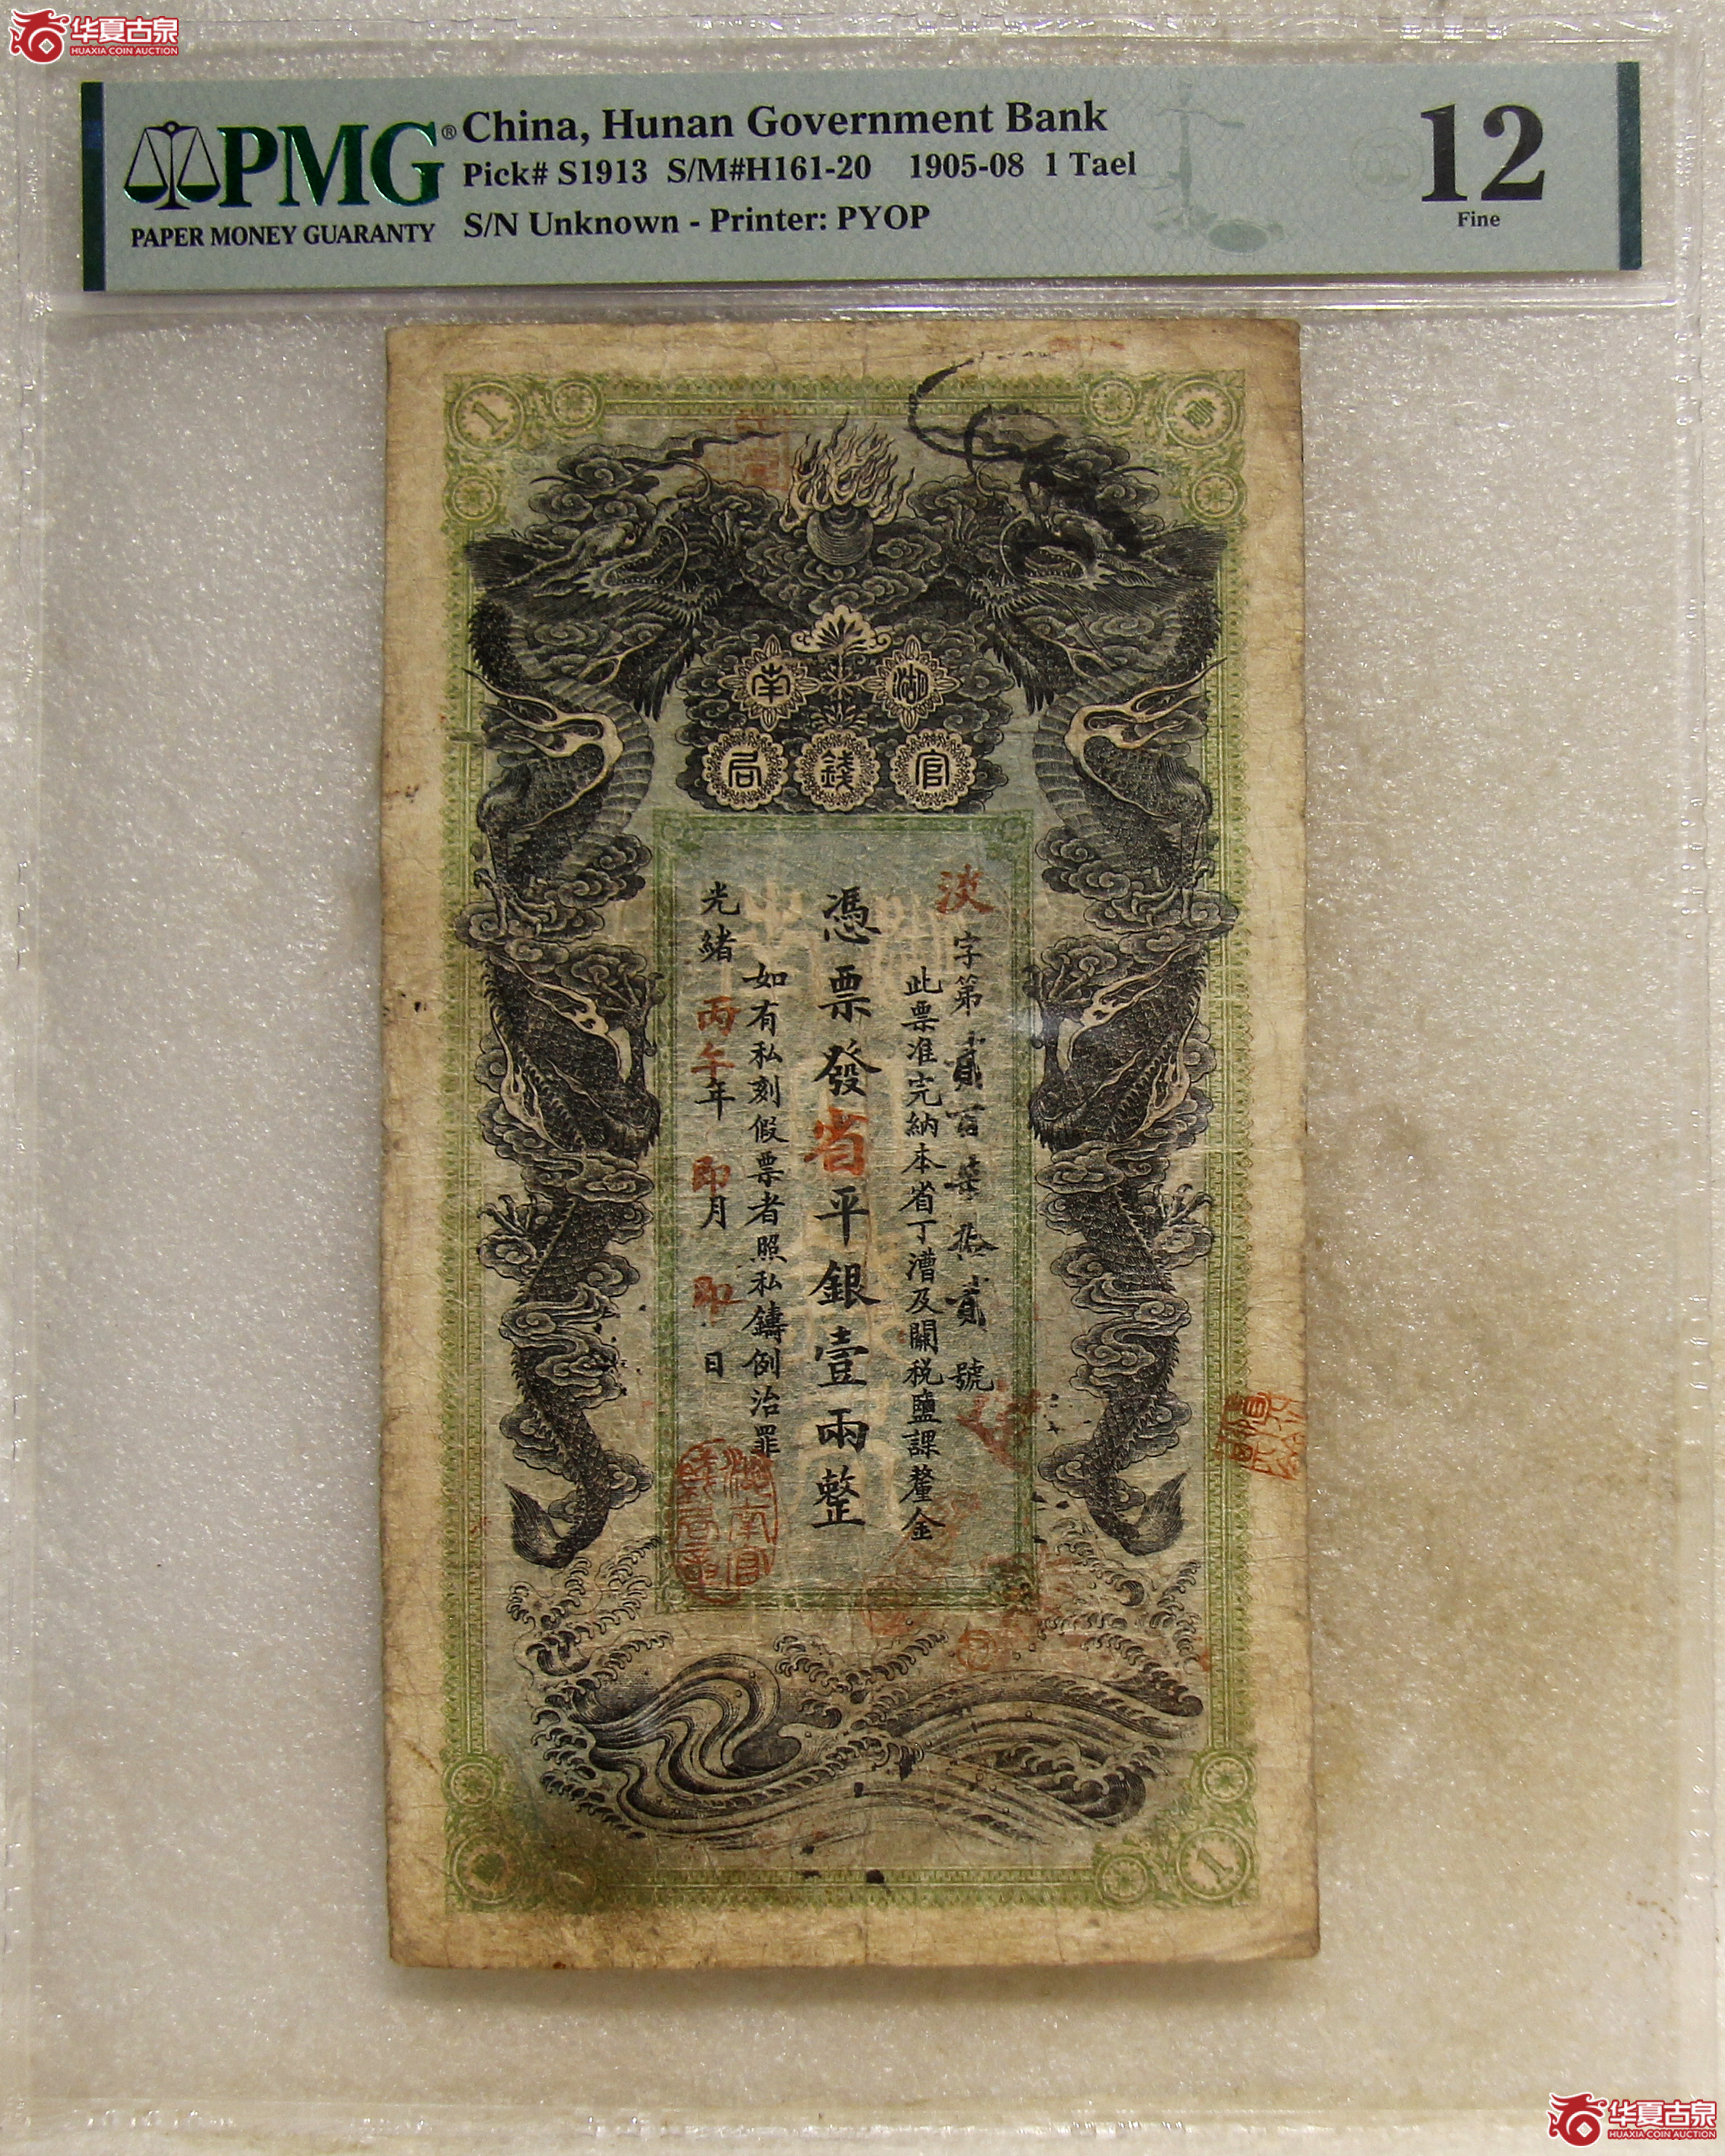 华夏古泉
HUAXIA COIN AUCTION
PMG®
PAPER MONEY GUARANTY
China, Hunan Government Bank
Pick# S1913 S/M#H161-20 1905-08 1 Tael
S/N Unknown - Printer: PYOP
12
Fine
1
壹
湖南
官錢局
淡字第貳百柒拾貳號
此票准完納本省丁漕及關稅鹽課釐金
憑票發省平銀壹兩整
如有私刻假票者照私鑄例治罪
光緒丙午年即月即日
1
华夏古泉
HUAXIA COIN AUCTION